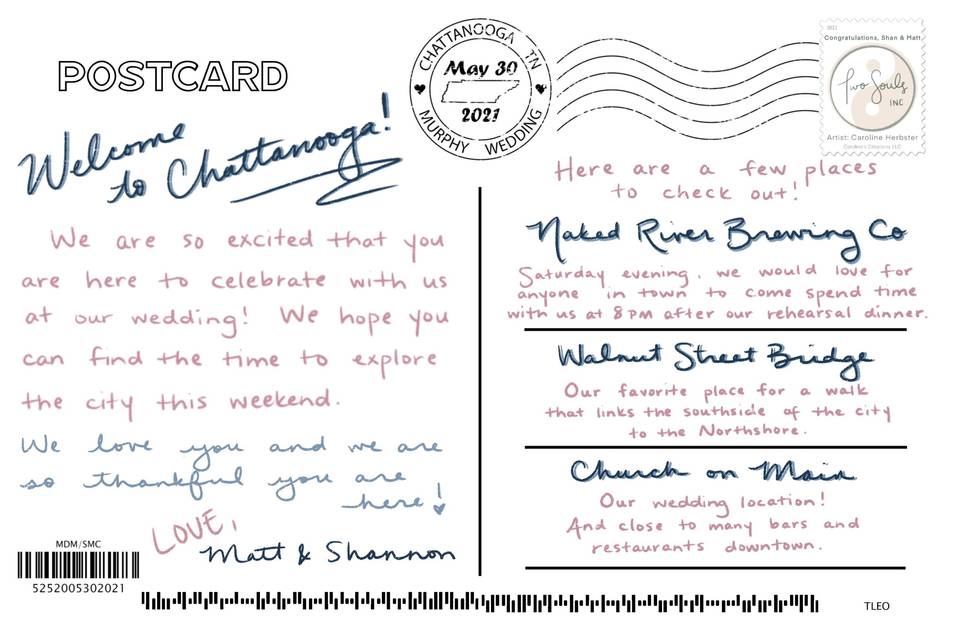 POSTCARD
Welcome
to Chattanooga!
We are so excited that you
are here to celebrate with us
at our wedding! We hope you
can find the time to explore
the city this weekend.
We love you and we are
so thankful you are
here!
LOVE,
Matt & Shannon
MDM/SMC
5252005302021
CHATTANOOGA TN
May 30
2021
MURPHY WEDDING
2021
Congratulations, Shan & Matt
Two Souls
INC
Artist: Caroline Herbster
Caroline's Creations LLC
Here are a few places
to check out!
Naked River Brewing Co
Saturday evening, we would love for
anyone in town to come spend time
with us at 8PM after our rehearsal dinner.
Walnut Street Bridge
Our favorite place for a walk
that links the southside of the city
to the Northshore.
Church on Main
Our wedding location!
And close to many bars and
restaurants downtown.
TLEO